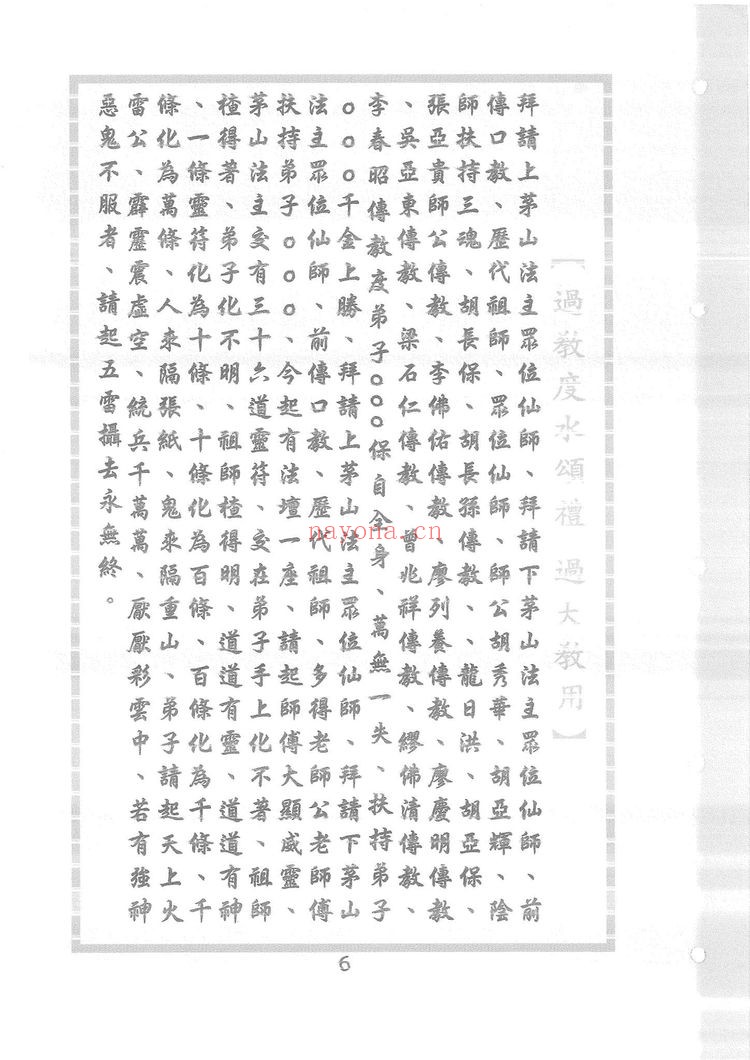 【過教度水頌禮 過大教用】
拜請上茅山法主眾位仙師、拜請下茅山法主眾位仙師、前
傳口教、歷代祖師、眾位仙師、師公胡秀華、胡亞輝、陰
師扶持三魂、胡長保、胡長孫傳教、龍日洪、胡亞保、
張亞貴師公傳教、李佛佑傳教、廖列養傳教、廖慶明傳教
、吳亞東傳教、梁石仁傳教、曾兆祥傳教、繆佛清傳教、
李春昭傳教度弟子○○○保自全身、萬無一失、扶持弟子
○○○千金上勝、拜請上茅山法主眾位仙師、拜請下茅山
法主眾位仙師、前傳口教、歷代祖師、多得老師公老師傅
扶持弟子○○○、今起有法壇一座、請起師傅大顯威靈、
茅山法主交有三十六道靈符、交在弟子手上化不著、祖師
楂得著、弟子化不明、祖師楂得明、道道有靈、道道有神
、一條靈符化為十條、十條化為百條、百條化為千條、千
條化為萬條、人來隔張紙、鬼來隔重山、弟子請起天上火
雷公、霹靂震虛空、統兵千萬萬、厭厭彩雲中、若有強神
惡鬼不服者、請起五雷攝去永無終。
nayona.cn
6